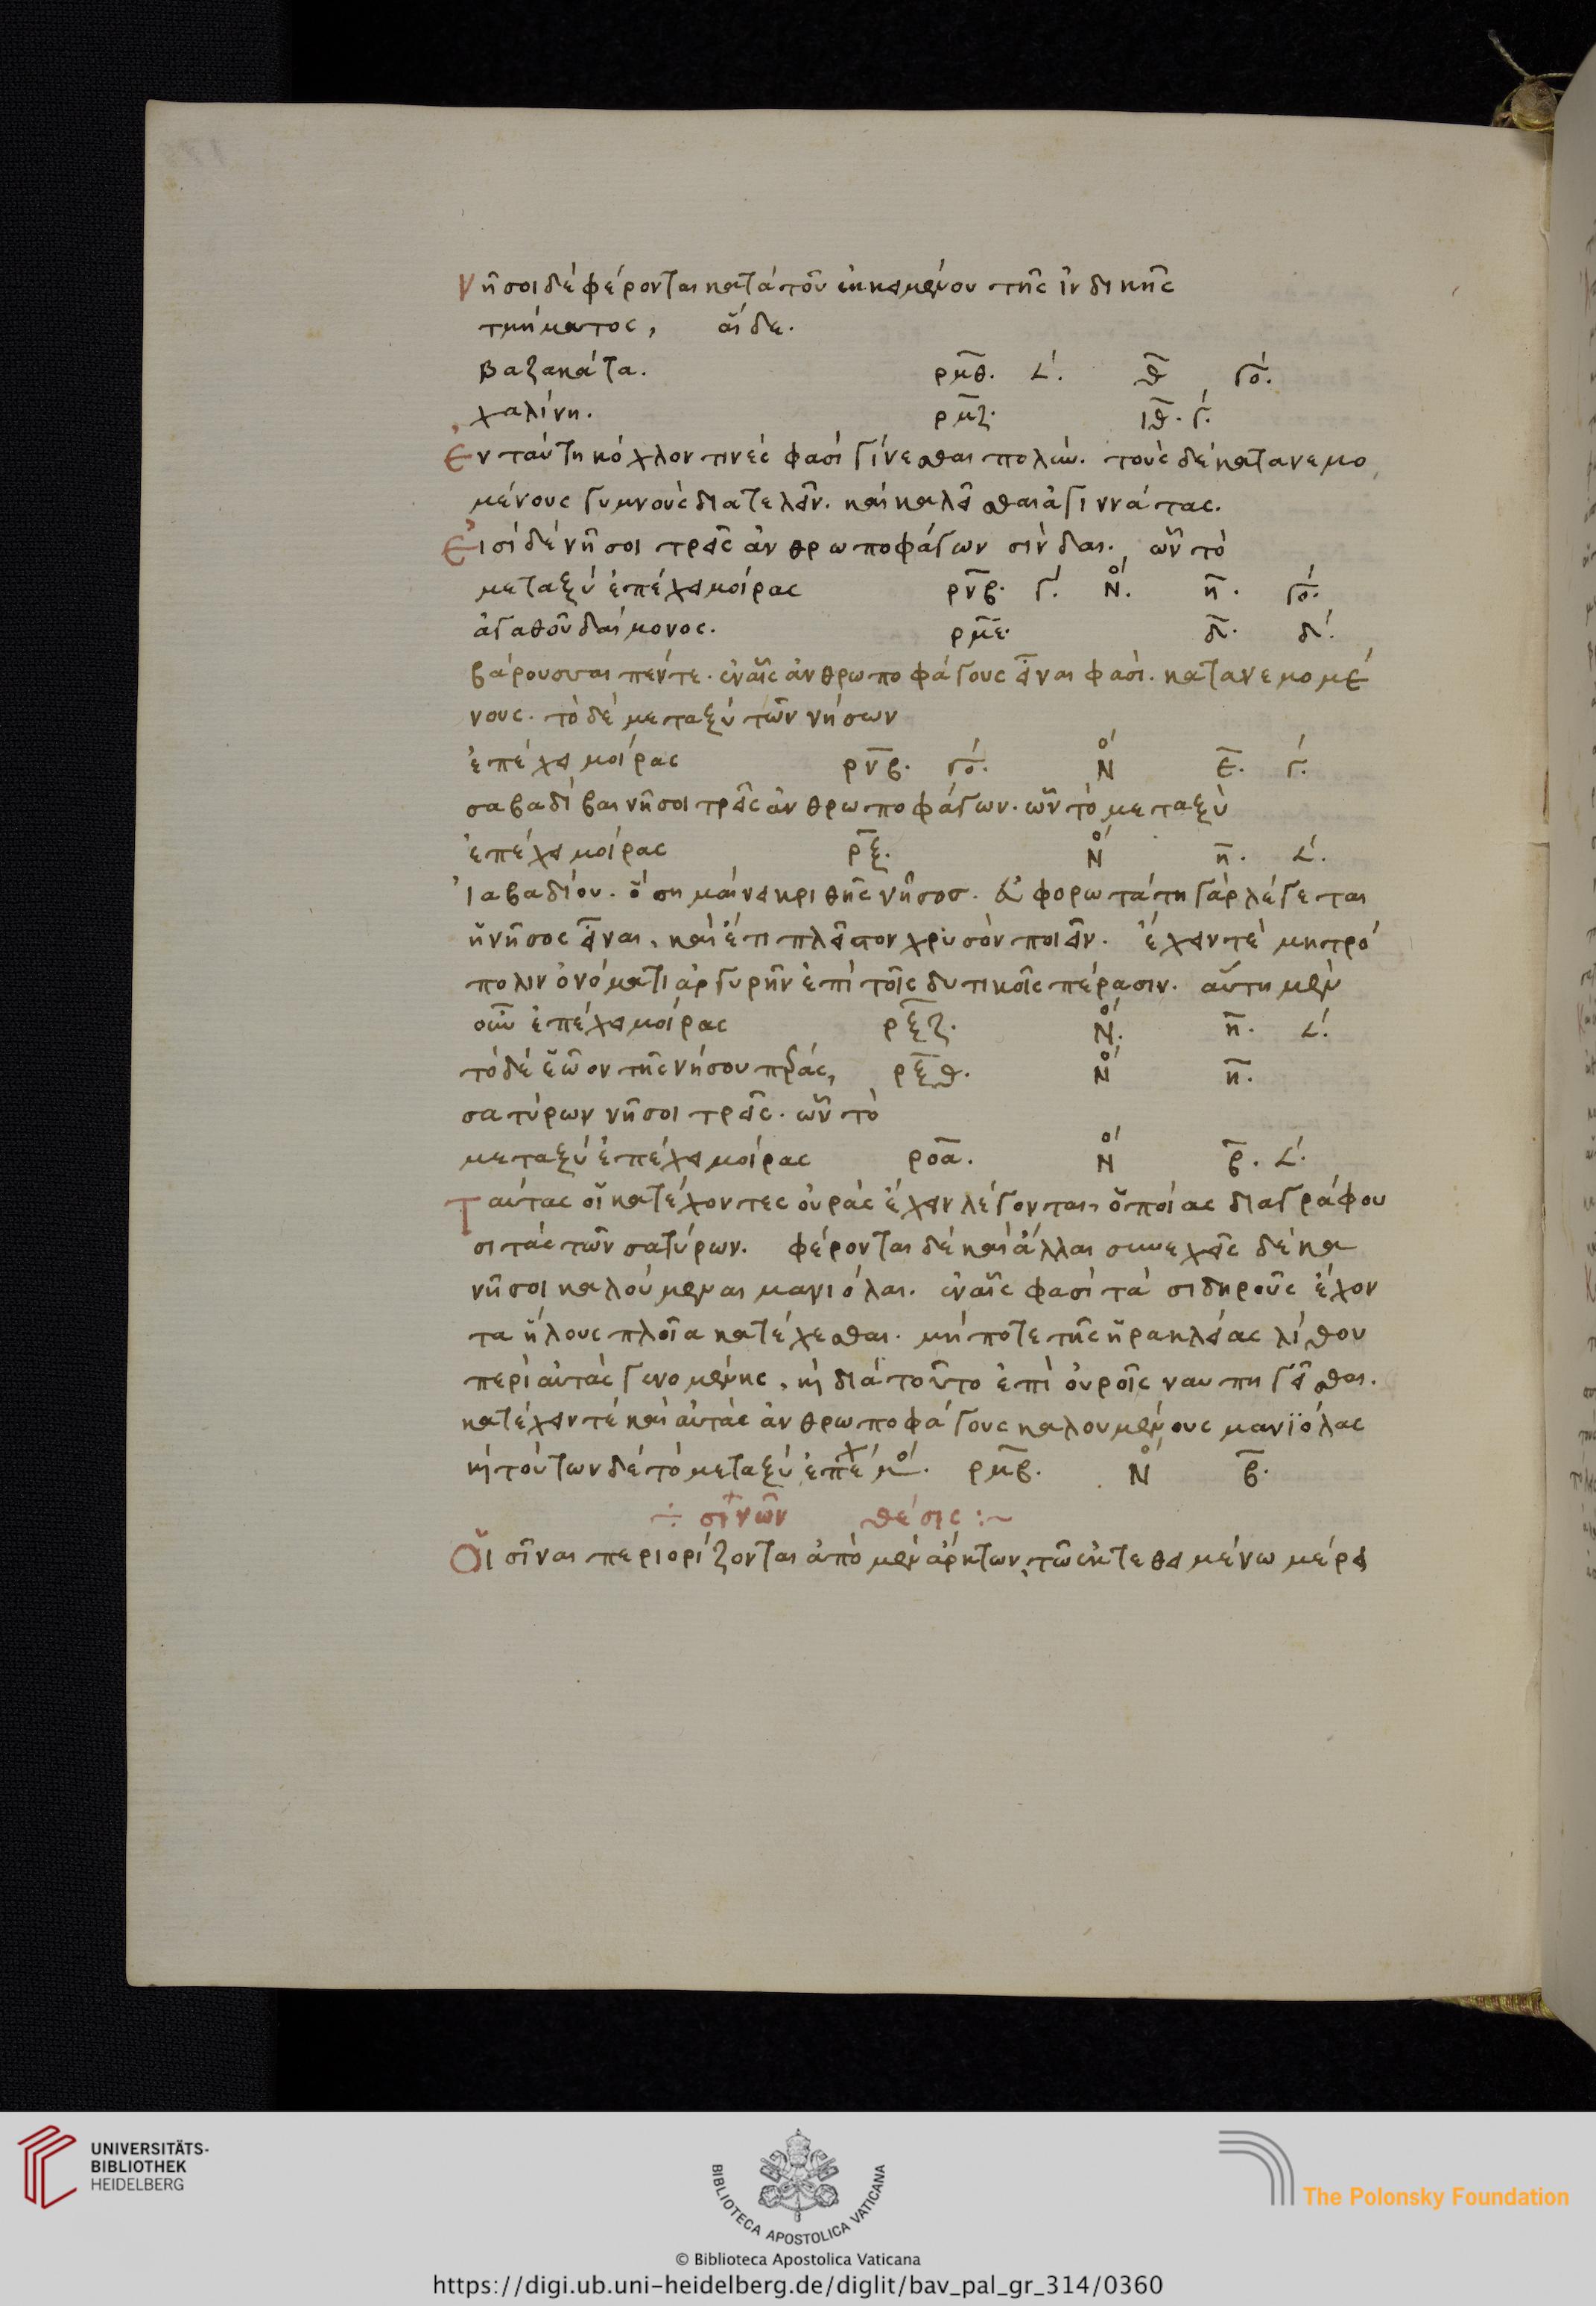 νῆσοι δὲ φέρονται κατὰ τοῦ ἐκκειμένου τῆς ἰνδικῆς
τμήματος, αἵδε.
βαζακάτα. ρμθ. 𐅵. θ γο.
χαλίνη. ρμζ. ιθ. γ.
Ἐν ταύτη κόχλον τινές φασὶ γίνεσθαι πολύν. τοὺς δὲ κατανεμο
μένους γυμνοὺς διατελεῖν. καὶ καλεῖσθαι ἀγιννάτας.
Εἰσὶ δὲ νῆσοι τρεῖς ἀνθρωποφάγων σίνδαι. ὧν τὸ
μεταξὺ ἐπέχει μοίρας ρνβ. γ. Ν. η. γο.
ἀγαθοῦ δαίμονος. ρμε. δ. δ.
βάρουσσαι πέντε. ἐν αἷς ἀνθρωποφάγους εἶναι φασὶ. κατανεμομέ
νους. τὸ δὲ μεταξὺ τῶν νήσων
ἐπέχει μοίρας ρνβ. γο. Ν ε. γ.
σαβαδίβαι νῆσοι τρεῖς ἀνθρωποφάγων. ὧν τὸ μεταξὺ
ἐπέχει μοίρας ρξ. Ν η. 𐅵.
Ἰαβαδίου. ὃ σημαίνει κριθῆς νῆσος. εὐφορωτάτη γὰρ λέγεται
ἡ νῆσος εἶναι, καὶ ἔτι πλεῖστον χρυσὸν ποιεῖν. ἔχειν τὲ μητρό
πολιν ὀνόματι ἀργυρῆν ἐπὶ τοῖς δυτικοῖς πέρασιν. αὕτη μὲν
οὖν ἐπέχει μοίρας ρξζ. Ν. η. 𐅵.
τὸ δὲ ἑῷον τῆς νήσου πέρας, ρξθ. Ν η.
σατύρων νῆσοι τρεῖς. ὧν τὸ
μεταξὺ ἐπέχει μοίρας ροα. Ν β. 𐅵.
Ταύτας οἱ κατέχοντες οὐρὰς ἔχειν λέγονται, ὁποίας διαγράφου
σι τὰς τῶν σατύρων. φέρονται δὲ καὶ ἄλλαι συνεχεῖς δέκα
νῆσοι καλούμεναι μανιόλαι. ἐν αἷς φασὶ τὰ σιδηροῦς ἔχον
τα ἥλους πλοῖα κατέχεσθαι. μήποτε τῆς ἡρακλείας λίθου
περὶ αὐτὰς γενομένης, κὴ διὰ τοῦτο ἐπὶ οὐροῖς ναυπηγεῖσθαι.
κατέχειν τὲ καὶ αὐτὰς ἀνθρωποφάγους καλουμένους μανϊόλας
κὴ τούτων δὲ τὸ μεταξὺ ἐπέχ μο. ρμβ. Ν β.
÷ σινῶν θέσις :~
Οἱ σῖναι περιορίζονται ἀπὸ μὲν ἄρκτων, τῶ ἐκτεθειμένω μέρει
UNIVERSITÄTS-
BIBLIOTHEK
HEIDELBERG
BIBLIOTECA APOSTOLICA VATICANA
The Polonsky Foundation
© Biblioteca Apostolica Vaticana
https://digi.ub.uni-heidelberg.de/diglit/bav_pal_gr_314/0360